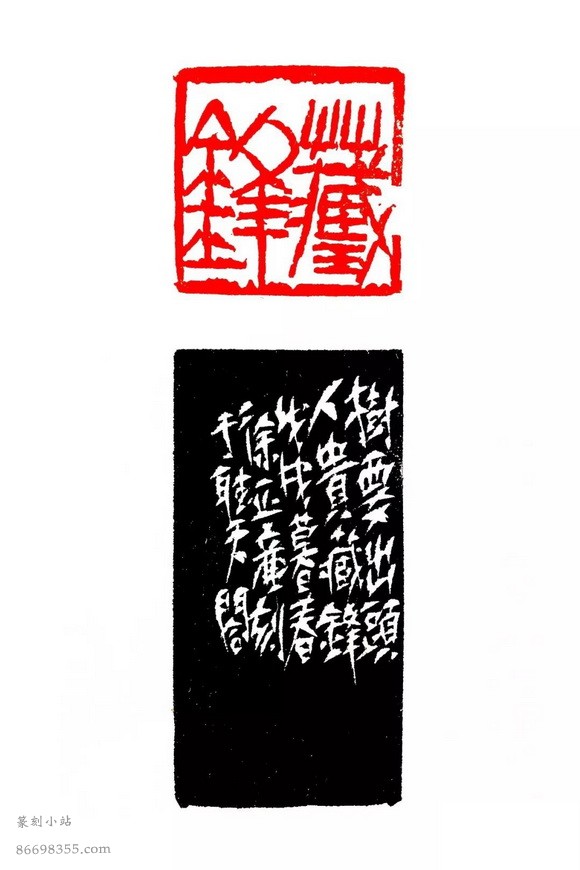 藏鋒
樹要出頭
人貴藏鋒
戊戌暮春
徐正廉刻
于聽天閣
篆刻小站
86698355.com